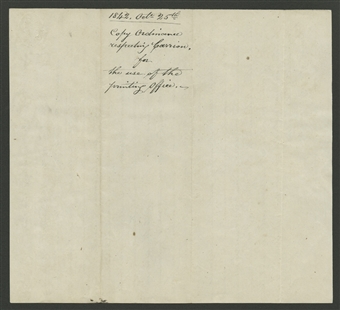 1842. Octr. 25th
Copy Ordinance
respecting Carrion.
for
the use of the
printing Office.